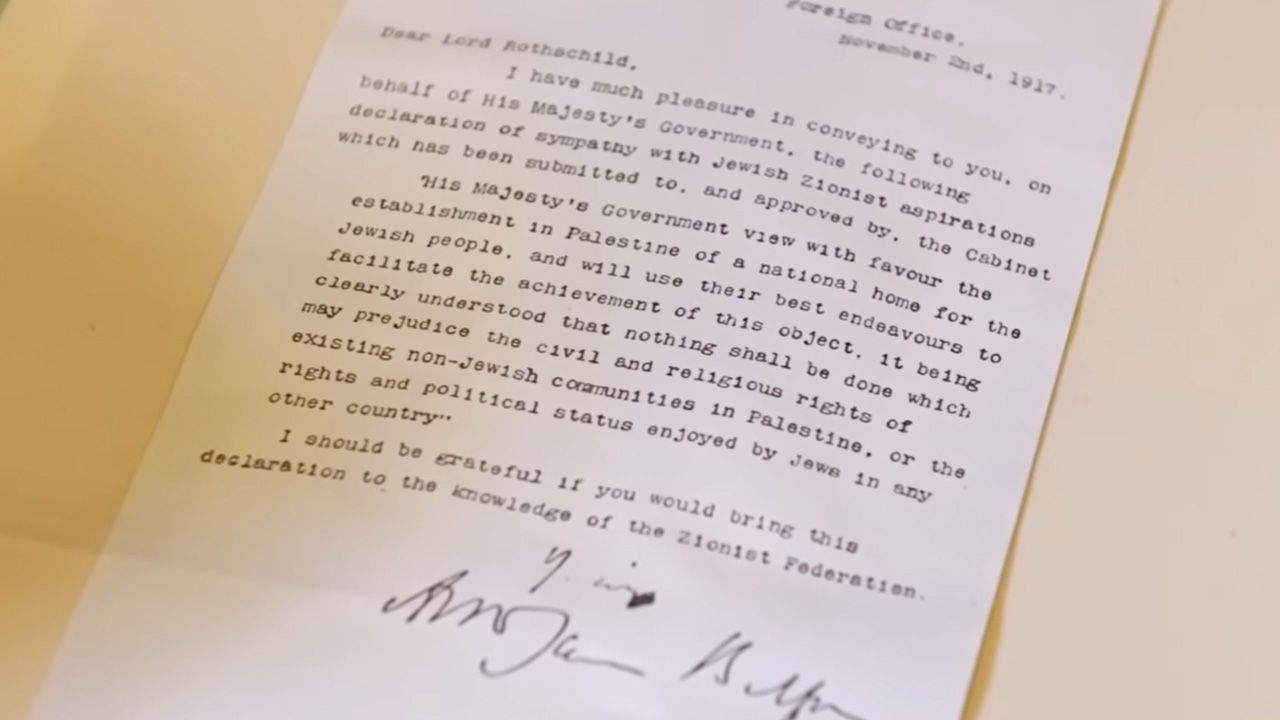 Foreign Office,
November 2nd, 1917.
Dear Lord Rothschild,
I have much pleasure in conveying to you, on
behalf of His Majesty's Government, the following
declaration of sympathy with Jewish Zionist aspirations
which has been submitted to, and approved by, the Cabinet
"His Majesty's Government view with favour the
establishment in Palestine of a national home for the
Jewish people, and will use their best endeavours to
facilitate the achievement of this object, it being
clearly understood that nothing shall be done which
may prejudice the civil and religious rights of
existing non-Jewish communities in Palestine, or the
rights and political status enjoyed by Jews in any
other country"
I should be grateful if you would bring this
declaration to the knowledge of the Zionist Federation.